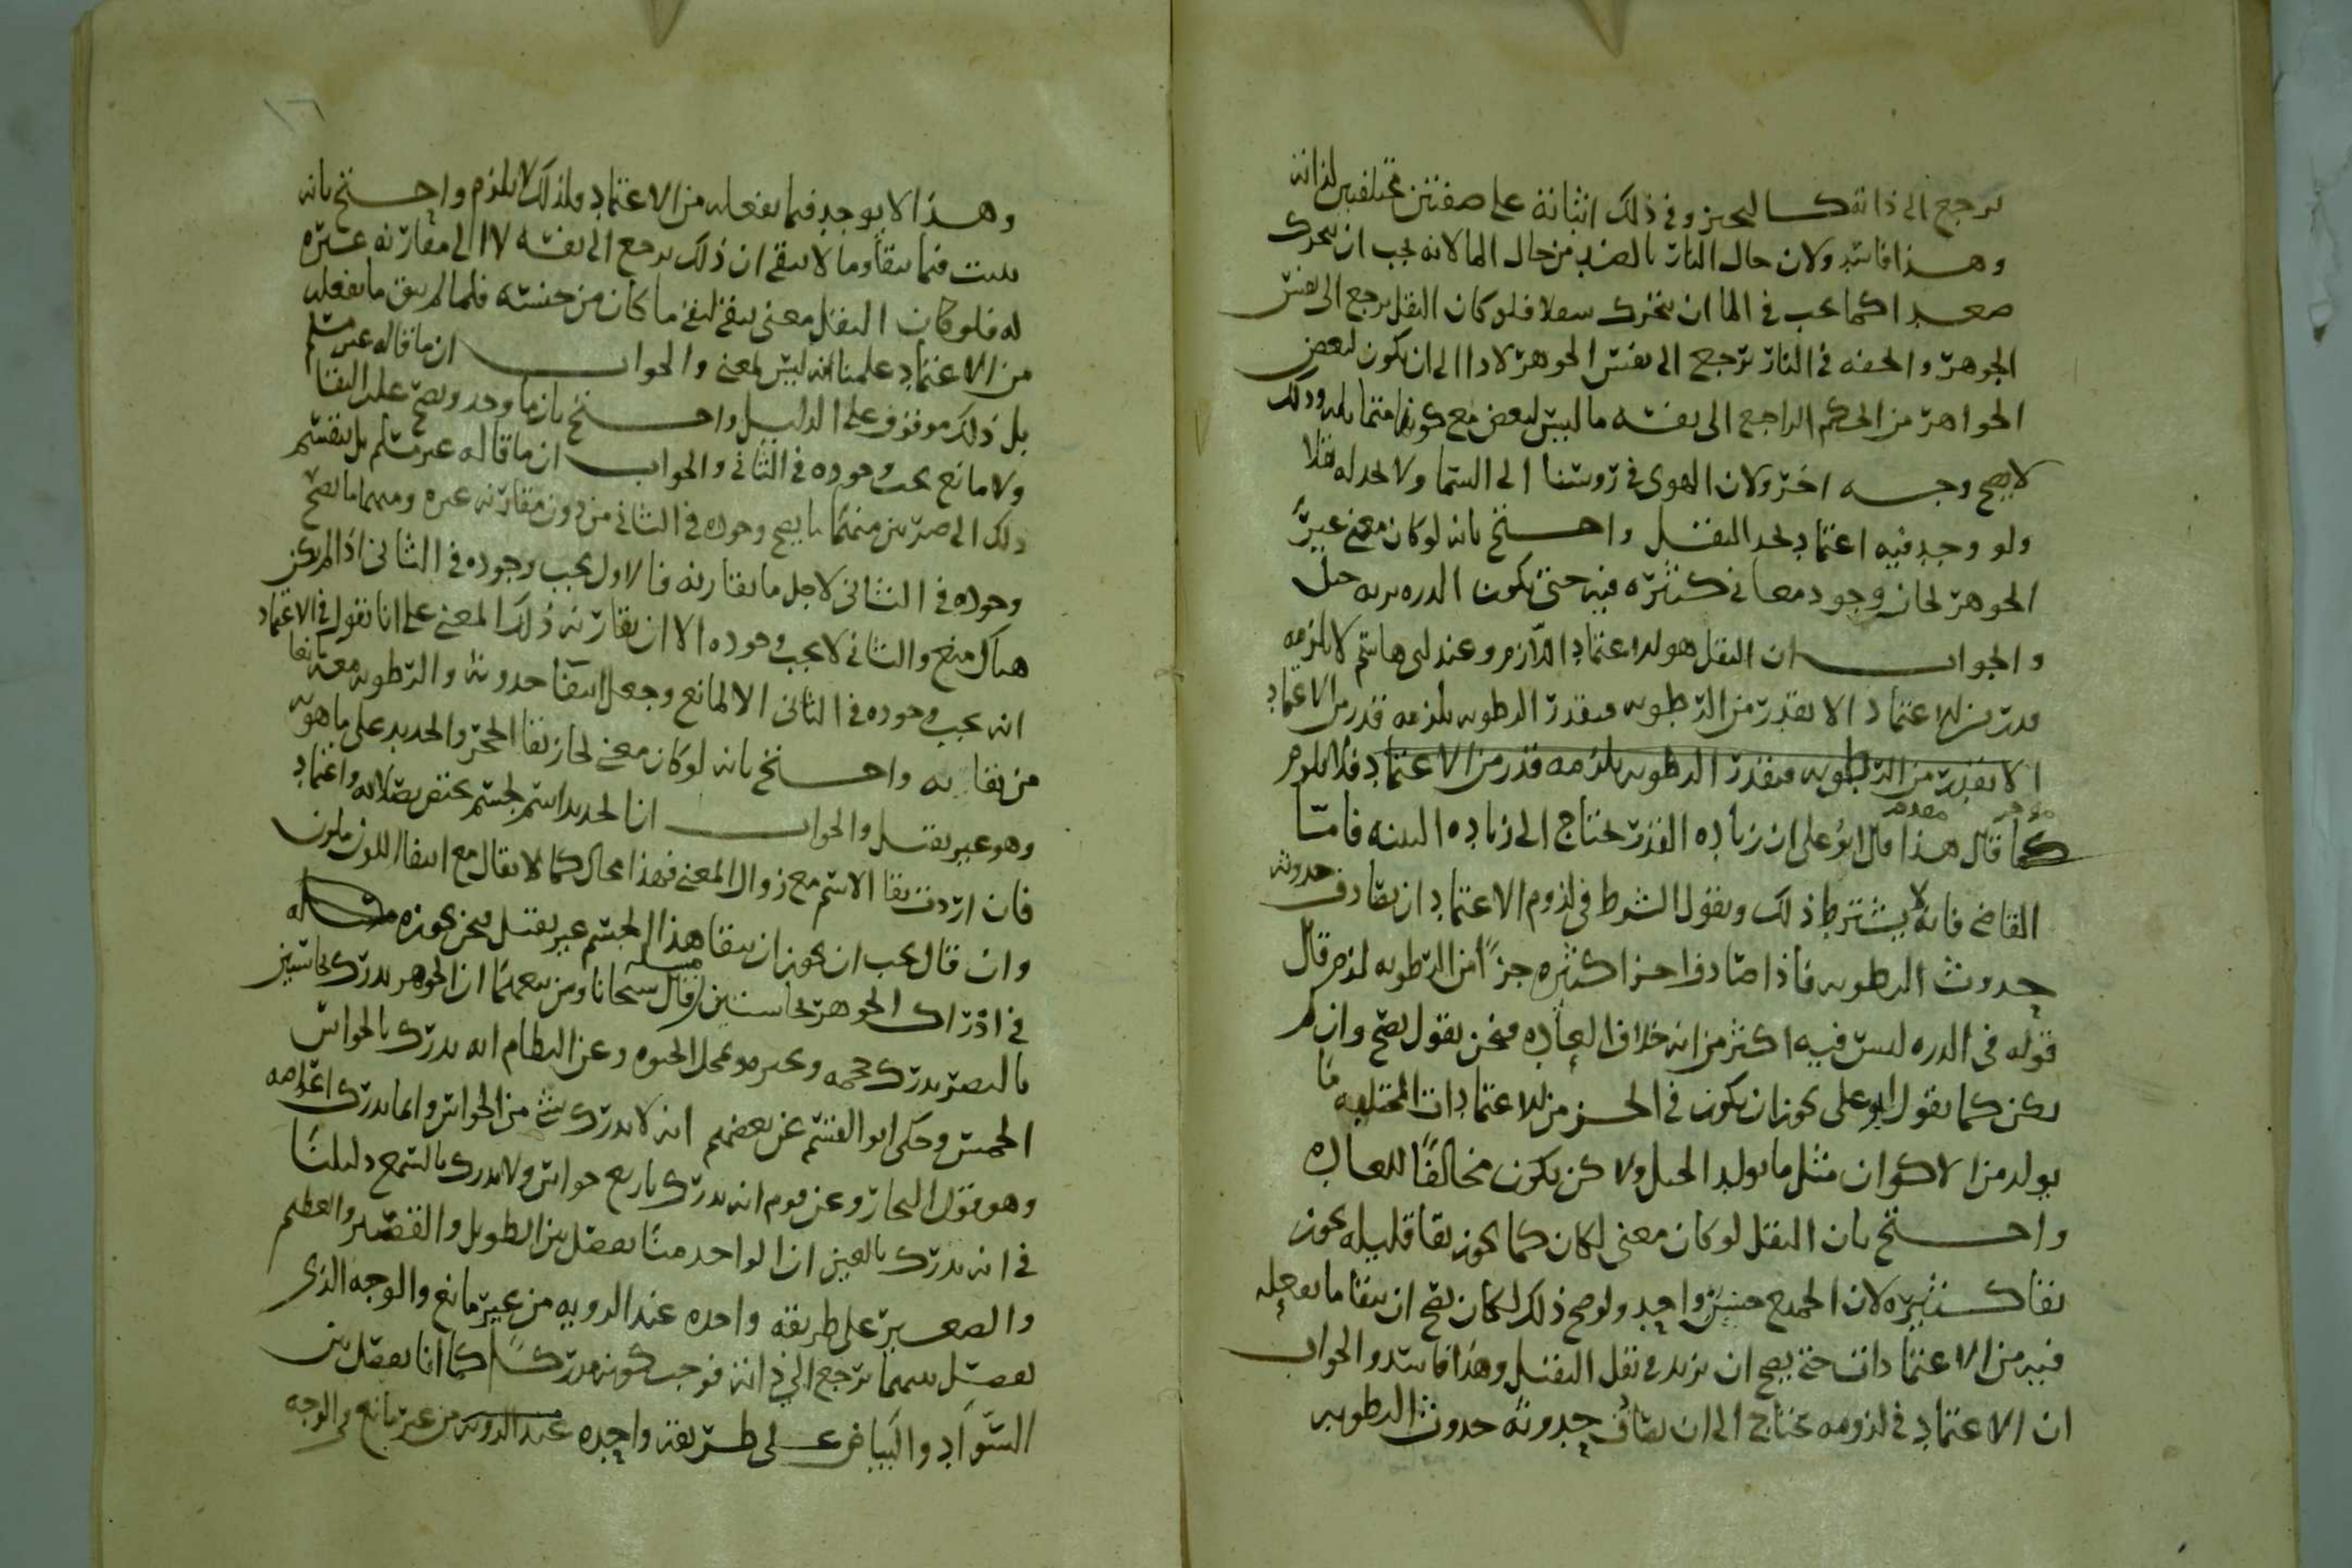 يرجع الى ذاته كالتحيز وفي ذلك اثباته على صفتين مختلفتين لذاته
وهذا فاسد ولان حال النار بالضد من حال الما لانه يجب ان تتحرك
صعدا كما يجب في الما ان يتحرك سفلا فلو كان الثقل يرجع الى نفس
الجوهر والخفه في النار ترجع الى نفس الجوهر لادا الى ان يكون لبعض
الجواهر من الحكم الراجع الى نفسه ما ليس لبعض مع كونها متماثله وذلك
لا يصح وجه اخر ولان الهوى في روسنا الى السما ولا نجد له ثقلا
ولو وجد فيه اعتماد لنجد الثقل واحتج بانه لو كان معنى غير
الجوهر لجاز وجود معاني كثيره فيه حتى تكون الذره بزنه جبل
والجواب ان الثقل هو الاعتماد اللازم وعند ابي هاشم لا يلزمه
قدر من الاعتماد الا بقدر من الرطوبه فبقدر الرطوبه يلزمه قدر من الاعتماد
الا بقدر من الرطوبه فبقدر الرطوبه يلزمه قدر من الاعتماد فلا يلزم
كما قال هذا قال ابو على ان زياده القدر تحتاج الى زياده البنيه فاما
القاضي فانه لا يشترط ذلك ويقول الشرط في لزوم الاعتماد ان يقارن حدوثه
حدوث الرطوبه فاذا صادف اجزا كثيره جزًا من الرطوبه لزم قال
قوله في الذره ليس فيه اكثر من انه خلاف العاده فنحن نقول يصح وان لم
يكن كما يقول ابو على يجوز ان يكون في الجزء من الاعتمادات المختلفه ما
يولد من الاكوان مثل ما يولد الجبل ولاكن يكون مخالفًا للعاده
واحتج بان الثقل لو كان معنى لكان كما يجوز بقا قليله يجوز
بقا كثيره لان الجميع جنس واحد ولو صح ذلك لكان يصح ان يبقا ما نفعله
فيه من الاعتمادات حتى يصح ان يزيد في ثقل الثقيل وهذا فاسد والجواب
ان الاعتماد في لزومه يحتاج الى ان يقارن حدوثه حدوث الرطوبه
وهذا لا يوجد فيما نفعله من الاعتماد فلذلك لا يلزم واحتج بانه
يثبت فيما يبقا وما لا يبقى ان ذلك يرجع الى نفسه لا الى مقارنه غيره
له فلو كان الثقل معنى يبقى لبقي ما كان من جنسه فلما لم يبق ما نفعله
من الاعتماد علمنا انه ليس لمعنى والجواب ان ما قاله غير مسلم
بل ذلك موقوف على الدليل واحتج بان ما وجد ويصح عليه البقا
ولا مانع يجب وجوده في الثاني والجواب ان ما قاله غير مسلم بل ينقسم
ذلك الى ضربين منهما ما يصح وجوده في الثاني من دون مقارنه غيره ومنهما ما يصح
وجوده في الثاني لاجل ما يقارنه فالاول يجب وجوده في الثاني اذا لم يكن
هناك منع والثاني لا يجب وجوده الا ان يقارنه ذلك المعنى على انا نقول في الاعتماد
انه يجب وجوده في الثاني الا لمانع وجعل انتفا حدوثه والرطوبه معه مانعا
من بقايه واحتج بانه لو كان معنى لجاز بقا الحجر والحديد على ما هو به
وهو غير ثقيل والجواب ان الحديد اسم لجسم يختص بصلابه واعتماد
فان اردت بقا الاسم مع زوال المعنى فهذا محال كما لا يقال مع انتفا اللون ملون
وان قال يجب ان يجوز ان يبقا هذا الجسم غير ثقيل فنحن نجوزه مسله
في ادراك الجوهر بحاستين مسله قال شيخانا ومن تبعهما ان الجوهر يدرك بحاستين
بالبصر يدرك حجمه وتحيزه وبمحل الحيوه وعن النظام انه يدرك بالحواس
الخمس وحكى ابو القسم عن بعضهم انه لا يدرك بشي من الحواس وانما يدرك اعراضه
وهو قول النجار وعن قوم انه يدرك باربع حواس ولا يدرك بالسمع دليلنا
في انه يدرك بالعين ان الواحد منا يفصل بين الطويل والقصير والعظيم
والصغير على طريقه واحده عند الرويه من غير مانع والوجه الذي
يفصل بينهما يرجع الى ذاته فوجب كونه مدركًا كما انا نفصل بين
السواد والبياض على طريقه واحده عند الرويه من غير مانع والوجه